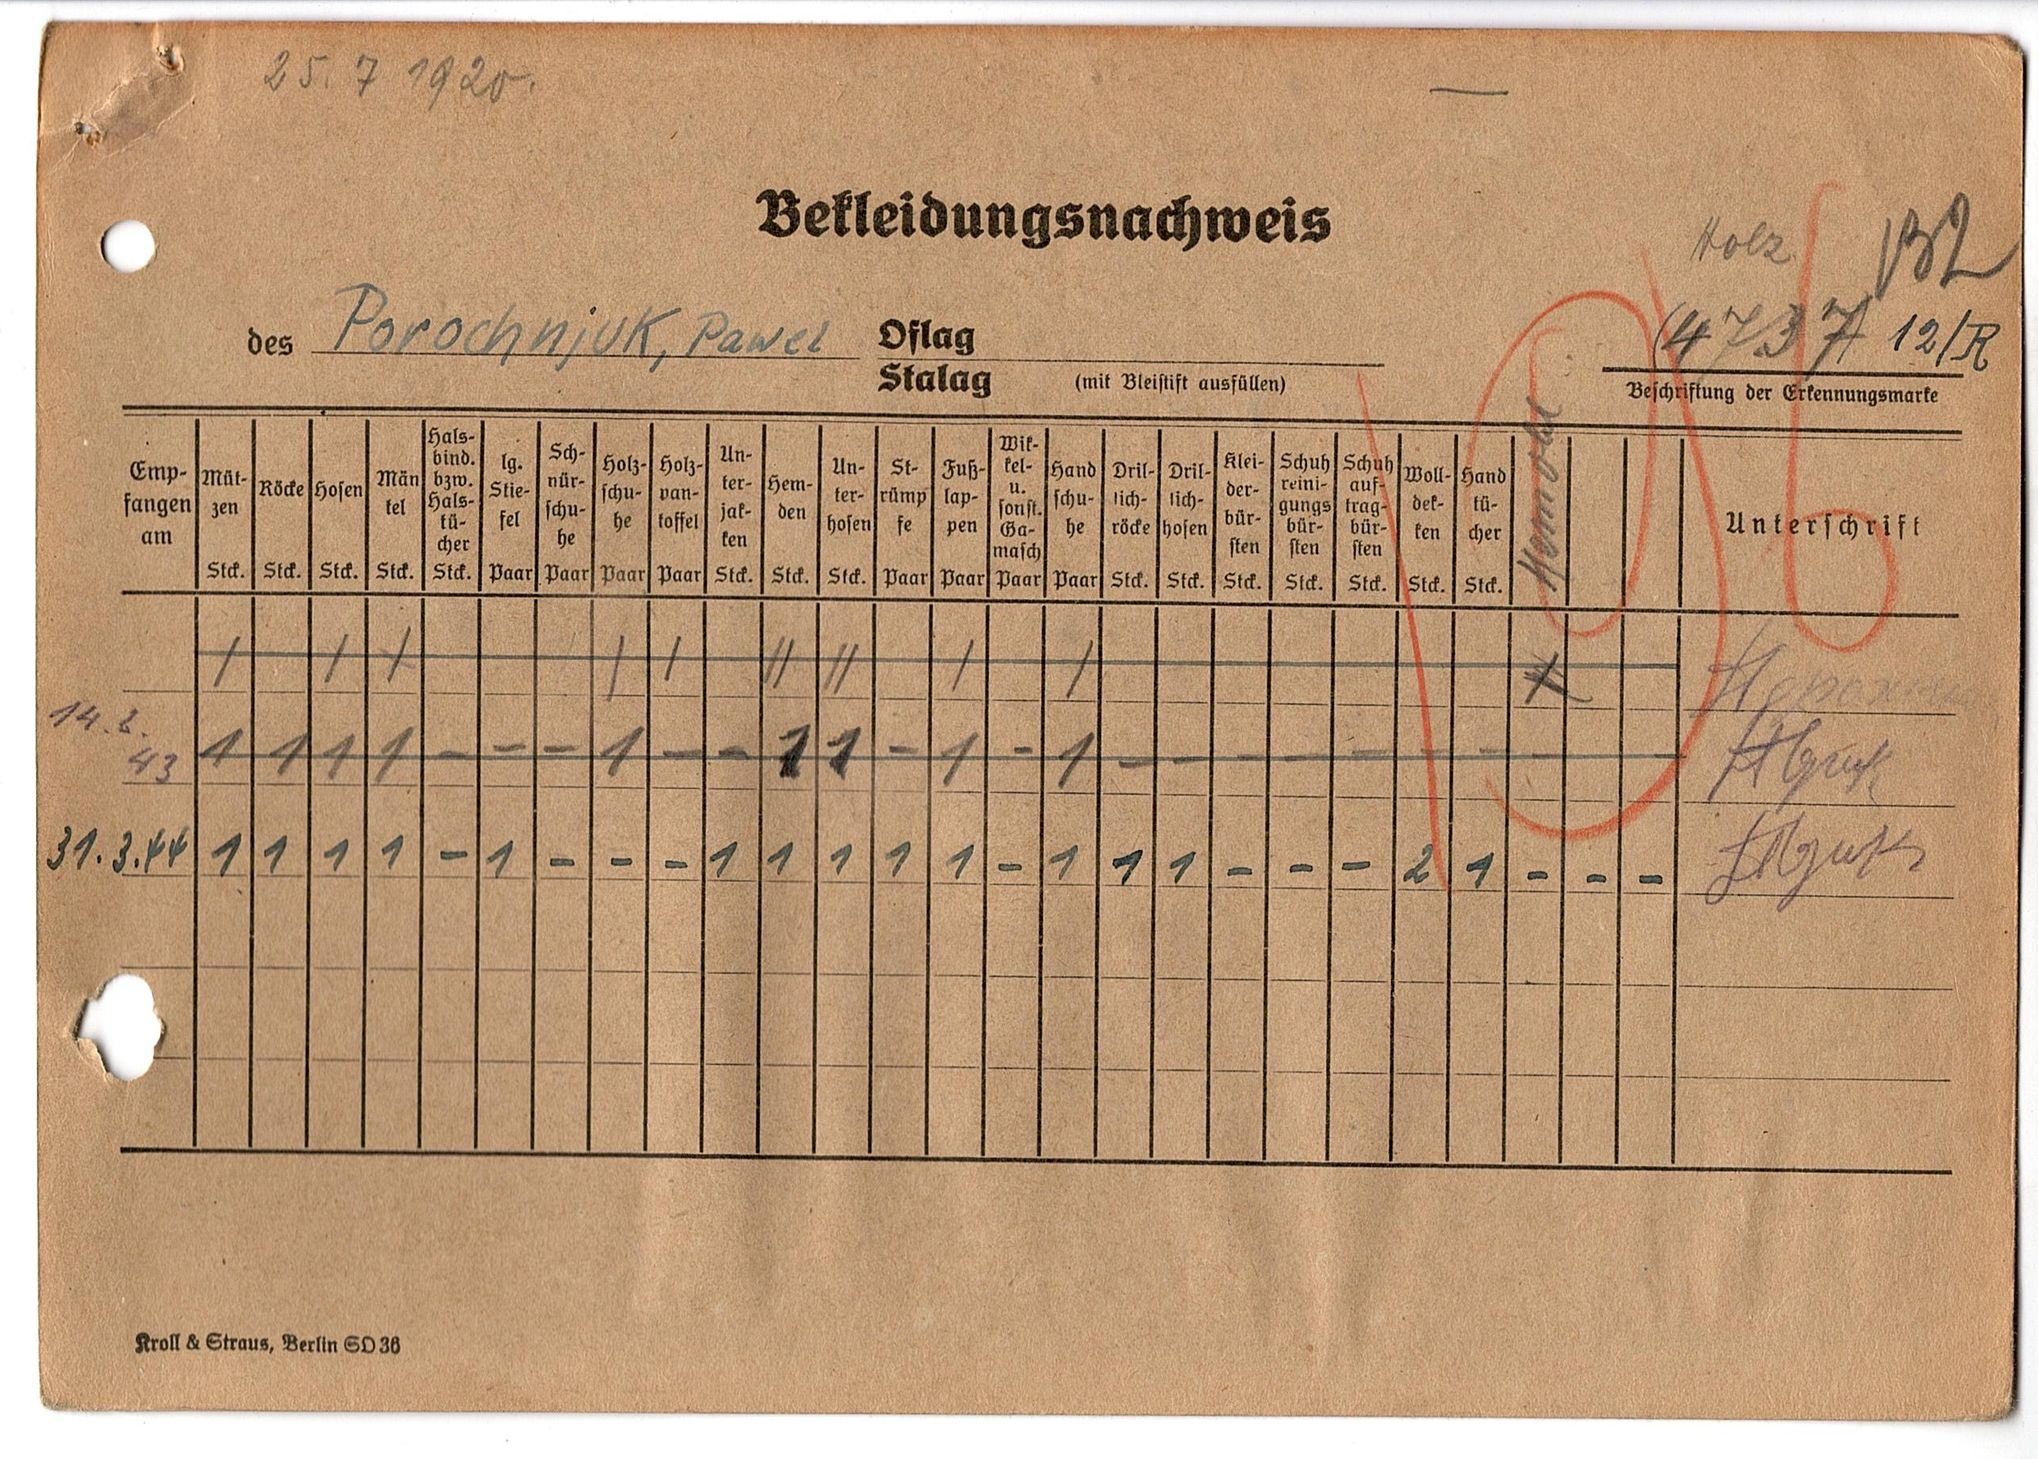 25. 7 1920.
Bekleidungsnachweis
Holz
132
des Porochnjuk, Pawel
Oflag
Stalag
(mit Bleistift ausfüllen)
(4737) 12/R
Beschriftung der Erkennungsmarke
Emp-
fangen
am
Müt-
zen
Stck.
Röcke
Stck.
Hosen
Stck.
Män
tel
Stck.
Hals-
bind.
bzw.
Hals-
tü-
cher
Stck.
lg.
Stie-
fel
Paar
Sch-
nür-
schu-
he
Paar
Holz-
schu-
he
Paar
Holz-
pan-
toffel
Paar
Un-
ter-
jak-
ken
Stck.
Hem-
den
Stck.
Un-
ter-
hosen
Stck.
St-
rümp
fe
Paar
Fuß-
lap-
pen
Paar
Wik-
kel-
u.
sonst.
Ga-
masch
Paar
Hand
schu-
he
Paar
Dril-
lich-
röcke
Stck.
Dril-
lich-
hosen
Stck.
Klei-
der-
bür-
sten
Stck.
Schuh
reini-
gungs
bür-
sten
Stck.
Schuh
auf-
trag-
bür-
sten
Stck.
Woll-
dek-
ken
Stck.
Hand
tü-
cher
Stck.
Unterschrift
/ / / / / // // / /
14. 2. 43 1 1 1 1 - - - 1 - - 1 1 - 1 - 1 - - - - - - - - - -
31. 3. 44 1 1 1 1 - 1 - - - 1 1 1 1 1 - 1 1 1 - - - 2 1 - - -
Kroll & Straus, Berlin SO 36